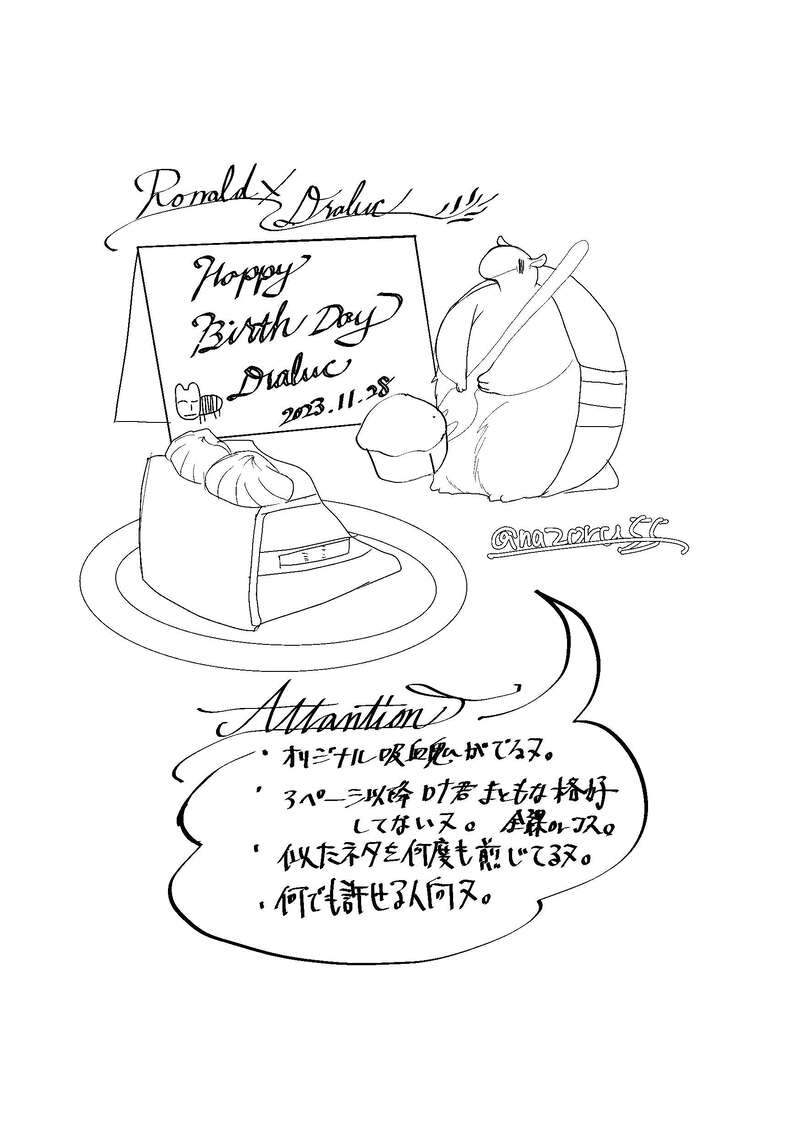 Ronald×Draluc
Happy
Birth Day
Draluc
2023.11.28
@nazorciss
Attantion
・オリジナル吸血鬼がでるヌ。
・3ページ以降ロナ君まともな格好
してないヌ。 全裸orコス。
・似たネタを何度も煎じてるヌ。
・何でも許せる人向ヌ。